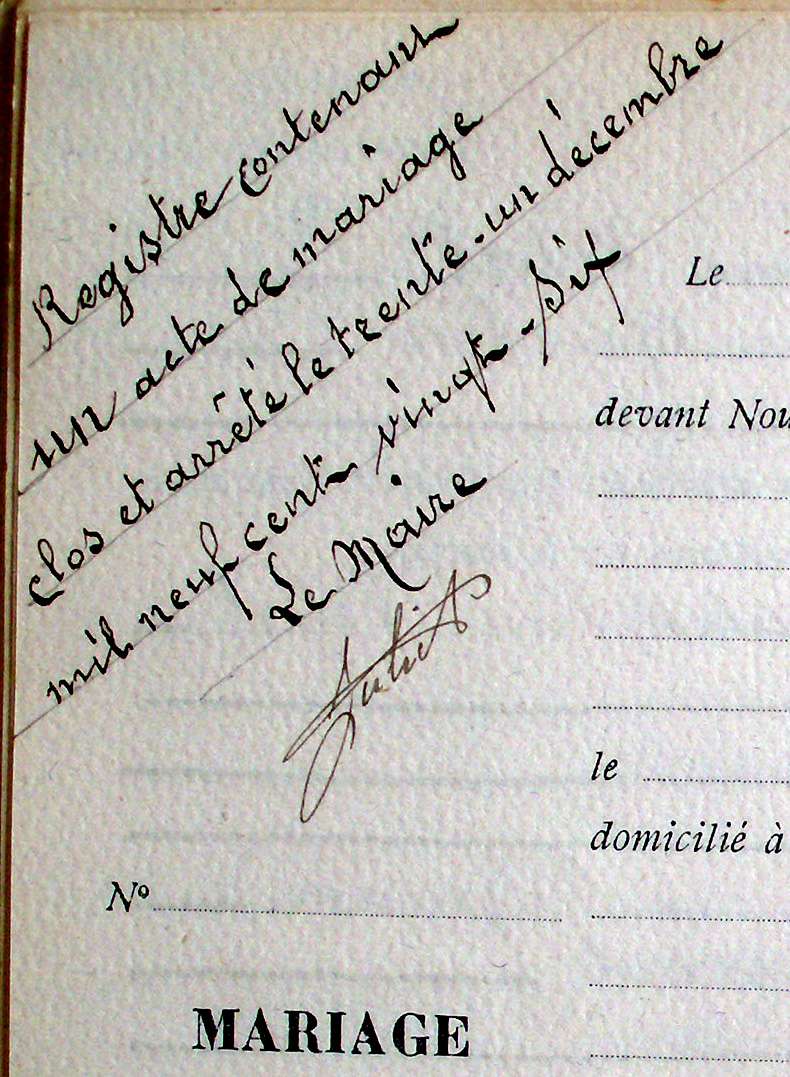 Registre contenant
un acte de mariage
clos et arrêté le trente-un décembre
mil neuf cent vingt-six
Le Maire
Le
devant Nou
le
domicilié à
No
MARIAGE